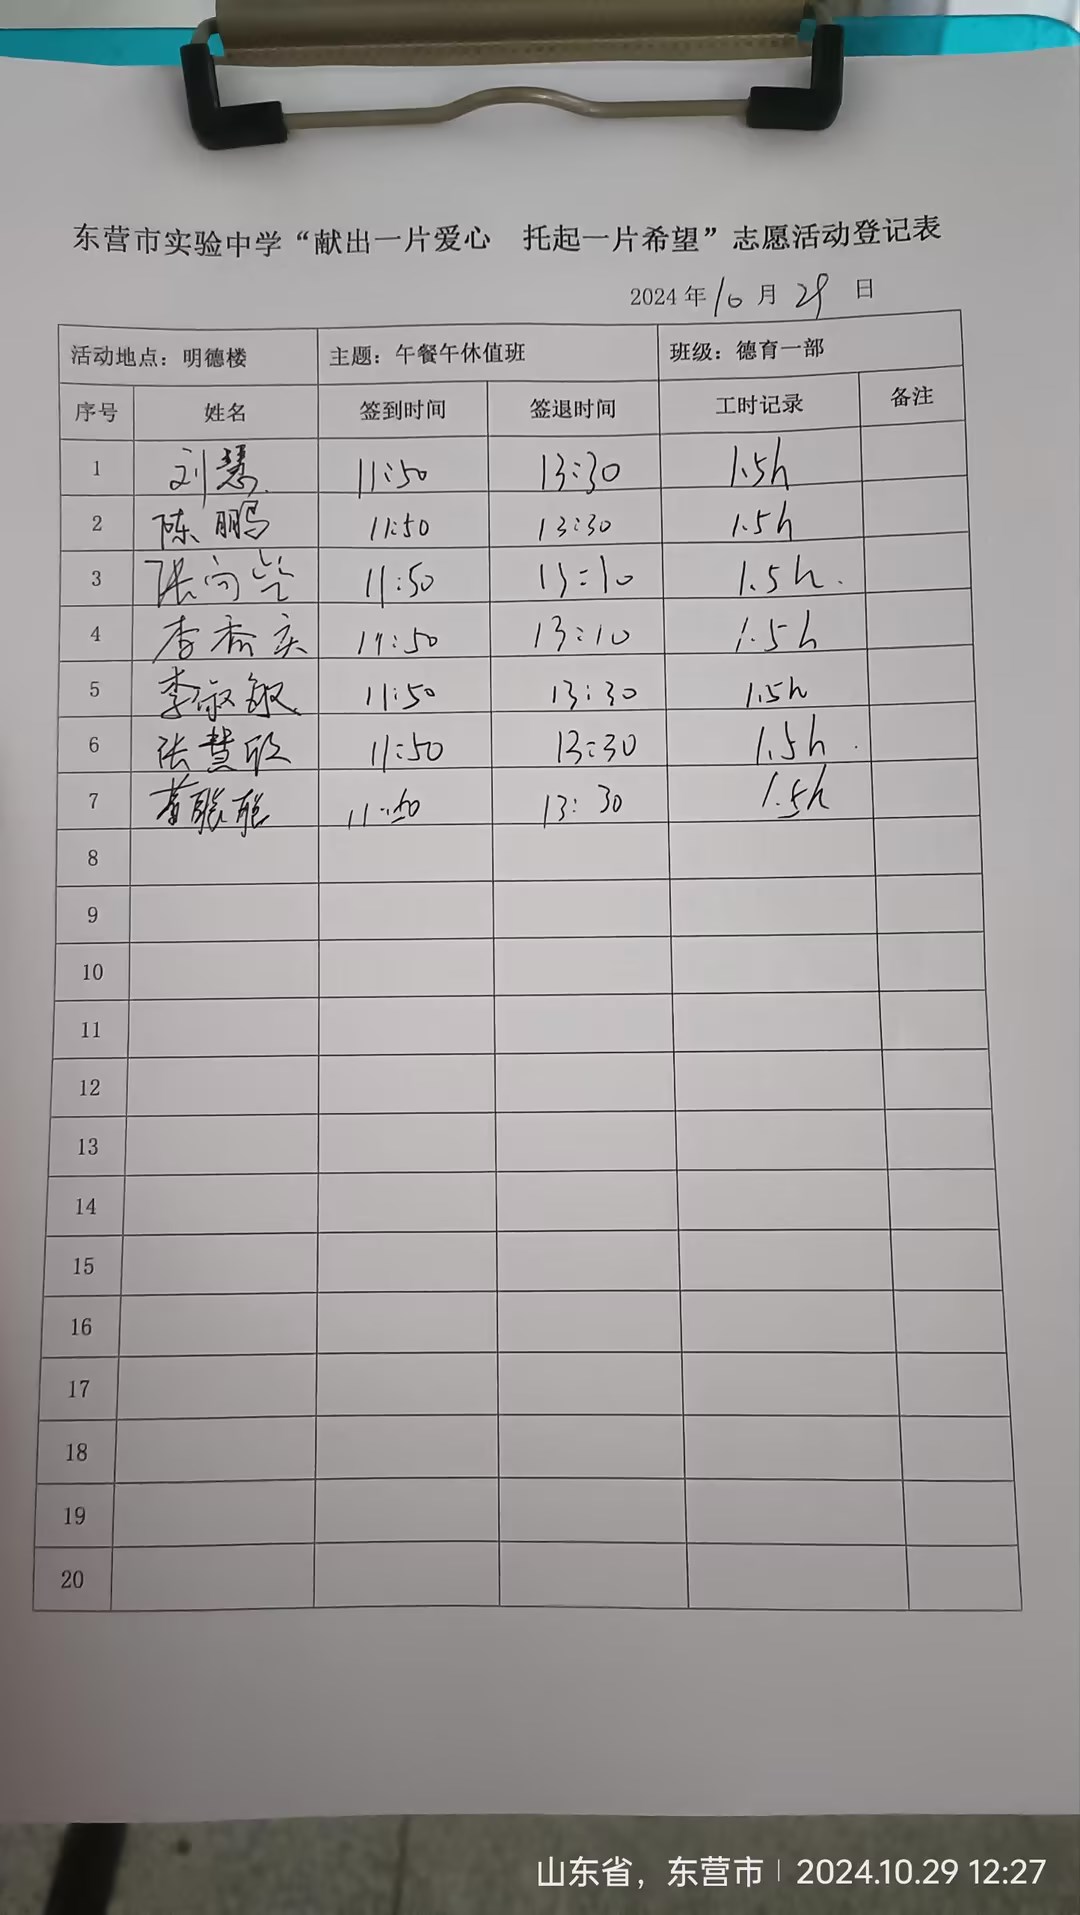 东营市实验中学“献出一片爱心 托起一片希望”志愿活动登记表
2024年10月29日
活动地点：明德楼 主题：午餐午休值班 班级：德育一部
序号 姓名 签到时间 签退时间 工时记录 备注
1 刘慧 11:50 13:30 1.5h
2 陈鹏 11:50 13:30 1.5h
3 张向 11:50 13:10 1.5h.
4 李 11:50 13:10 1.5h
5 李敏 11:50 13:30 1.5h
6 张慧欣 11:50 13:30 1.5h.
7 聪聪 11:50 13:30 1.5h
8
9
10
11
12
13
14
15
16
17
18
19
20
山东省，东营市 | 2024.10.29 12:27